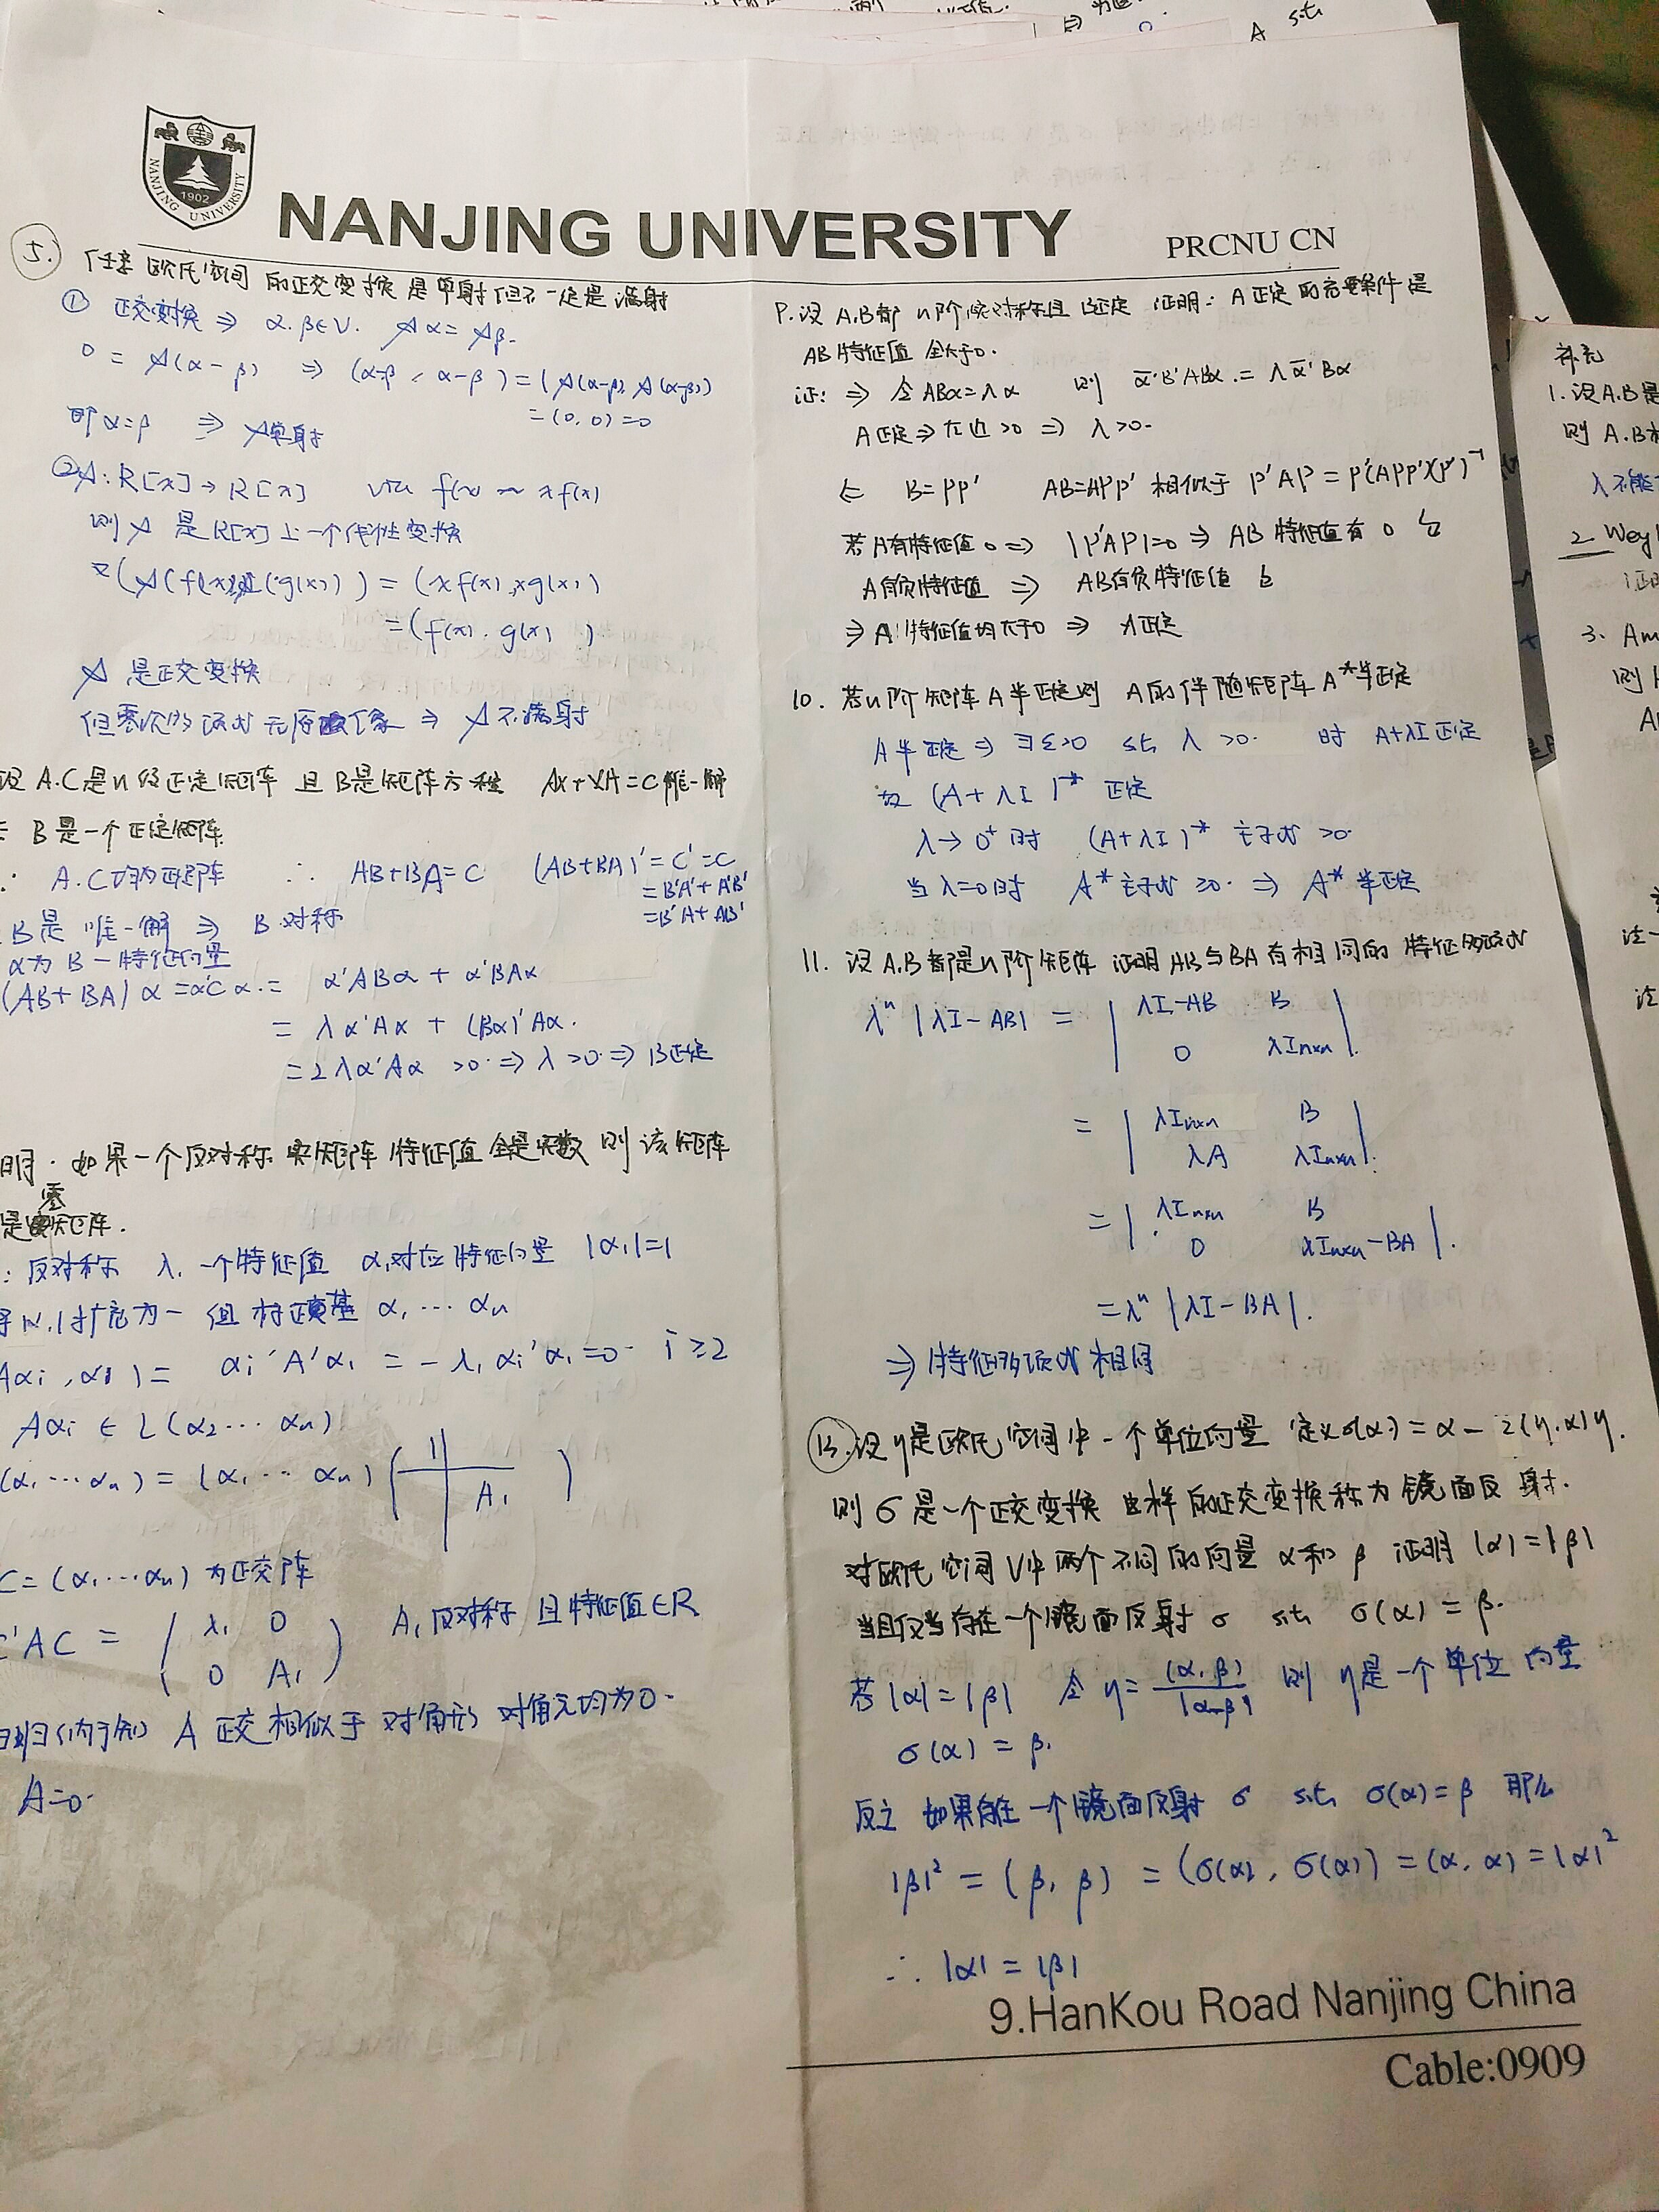 NANJING UNIVERSITY
1902
NANJING UNIVERSITY
PRCNU CN
5. 任意欧氏空间的正交变换是单射但不一定是满射
① 正交变换 ⇒ α.β∈V. 𝒜α = 𝒜β.
0 = 𝒜(α-β) ⇒ (α-β, α-β) = (𝒜(α-β), 𝒜(α-β))
= (0,0) = 0
即 α=β ⇒ 𝒜单射
② 𝒜: R[x] → R[x] via f(x) ~ xf(x)
则 𝒜 是 R[x] 上一个线性变换
又 (𝒜(f(x)), (g(x))) = (xf(x), xg(x))
= (f(x), g(x))
𝒜 是正交变换
但零次多项式无原像 ⇒ 𝒜不满射
设 A.C是n级正定矩阵 且 B是矩阵方程 AX+XA=C唯一解
B是一个正定矩阵
A.C均为正定阵 ∴ AB+BA=C (AB+BA)'=C'=C
=B'A'+A'B'
=B'A+AB'
B是唯一解 ⇒ B对称
α为B一特征向量
(AB+BA)α = α'Cα = α'ABα + α'BAα
= λα'Aα + (Bα)'Aα.
= 2λα'Aα >0 ⇒ λ>0 ⇒ B正定
明. 如果一个反对称实矩阵特征值全是实数 则该矩阵
是零矩阵.
: 反对称 λ₁一个特征值 α₁对应特征向量 |α₁|=1
扩充为一组标正基 α₁ ⋯ αₙ
Aαi, α₁) = αi'A'α₁ = -λ₁αi'α₁ = 0 i≥2
Aαi ∈ L(α₂ ⋯ αₙ)
(α₁ ⋯ αₙ) = (α₁ ⋯ αₙ) ( 1 A₁ )
C=(α₁ ⋯ αₙ) 为正交阵
C'AC = ( λ₁ 0 A₁反对称 且特征值∈R
0 A₁ )
A 正交相似于对角形 对角元均为0.
A=0.
9. 设 A.B都n阶实对称且B正定 证明: A正定的充要条件是
AB特征值全大于0.
证: ⇒ 令ABα=λα 则 ᾱ'B'ABα = λᾱ'Bα
A正定⇒左边>0 ⇒ λ>0.
⇐ B=PP' AB=APP'相似于 P'AP = P'(APP')(P')⁻¹
若A有特征值0 ⇒ |P'AP|=0 ⇒ AB特征值有0
A有负特征值 ⇒ AB有负特征值
⇒ A特征值均大于0 ⇒ A正定
10. 若n阶矩阵A半正定则 A的伴随矩阵A*半正定
A半正定 ⇒ ∃ε>0 s.t. λ>0. 时 A+λI正定
故 (A+λI)* 正定
λ→0⁺时 (A+λI)* 主子式>0.
当λ=0时 A*主子式≥0. ⇒ A*半正定
11. 设A.B都是n阶矩阵 证明AB与BA有相同的特征多项式
λⁿ|λI-AB| = | λI-AB B
0 λIn×n |
= | λIn×n B
λA λIn×n |
= | λIn×n B
0 λIn×n-BA |.
= λⁿ|λI-BA|.
⇒ 特征多项式相同
13. 设η是欧氏空间中一个单位向量 定义σ(α)=α-2(η,α)η.
则σ是一个正交变换 这样的正交变换称为镜面反射.
对欧氏空间V中两个不同的向量α和β 证明|α|=|β|
当且仅当存在一个镜面反射σ s.t. σ(α)=β.
若|α|=|β| 令η=(α,β)/|α-β| 则η是一个单位向量
σ(α)=β.
反之 如果存在一个镜面反射σ s.t. σ(α)=β 那么
|β|² = (β,β) = (σ(α), σ(α)) = (α,α) = |α|²
∴ |α|=|β|
9.HanKou Road Nanjing China
Cable:0909
补充
1. 设A.B是
则 A.B
λ不能
2. Weyl
3. Am
则
注一
注
A s.t.